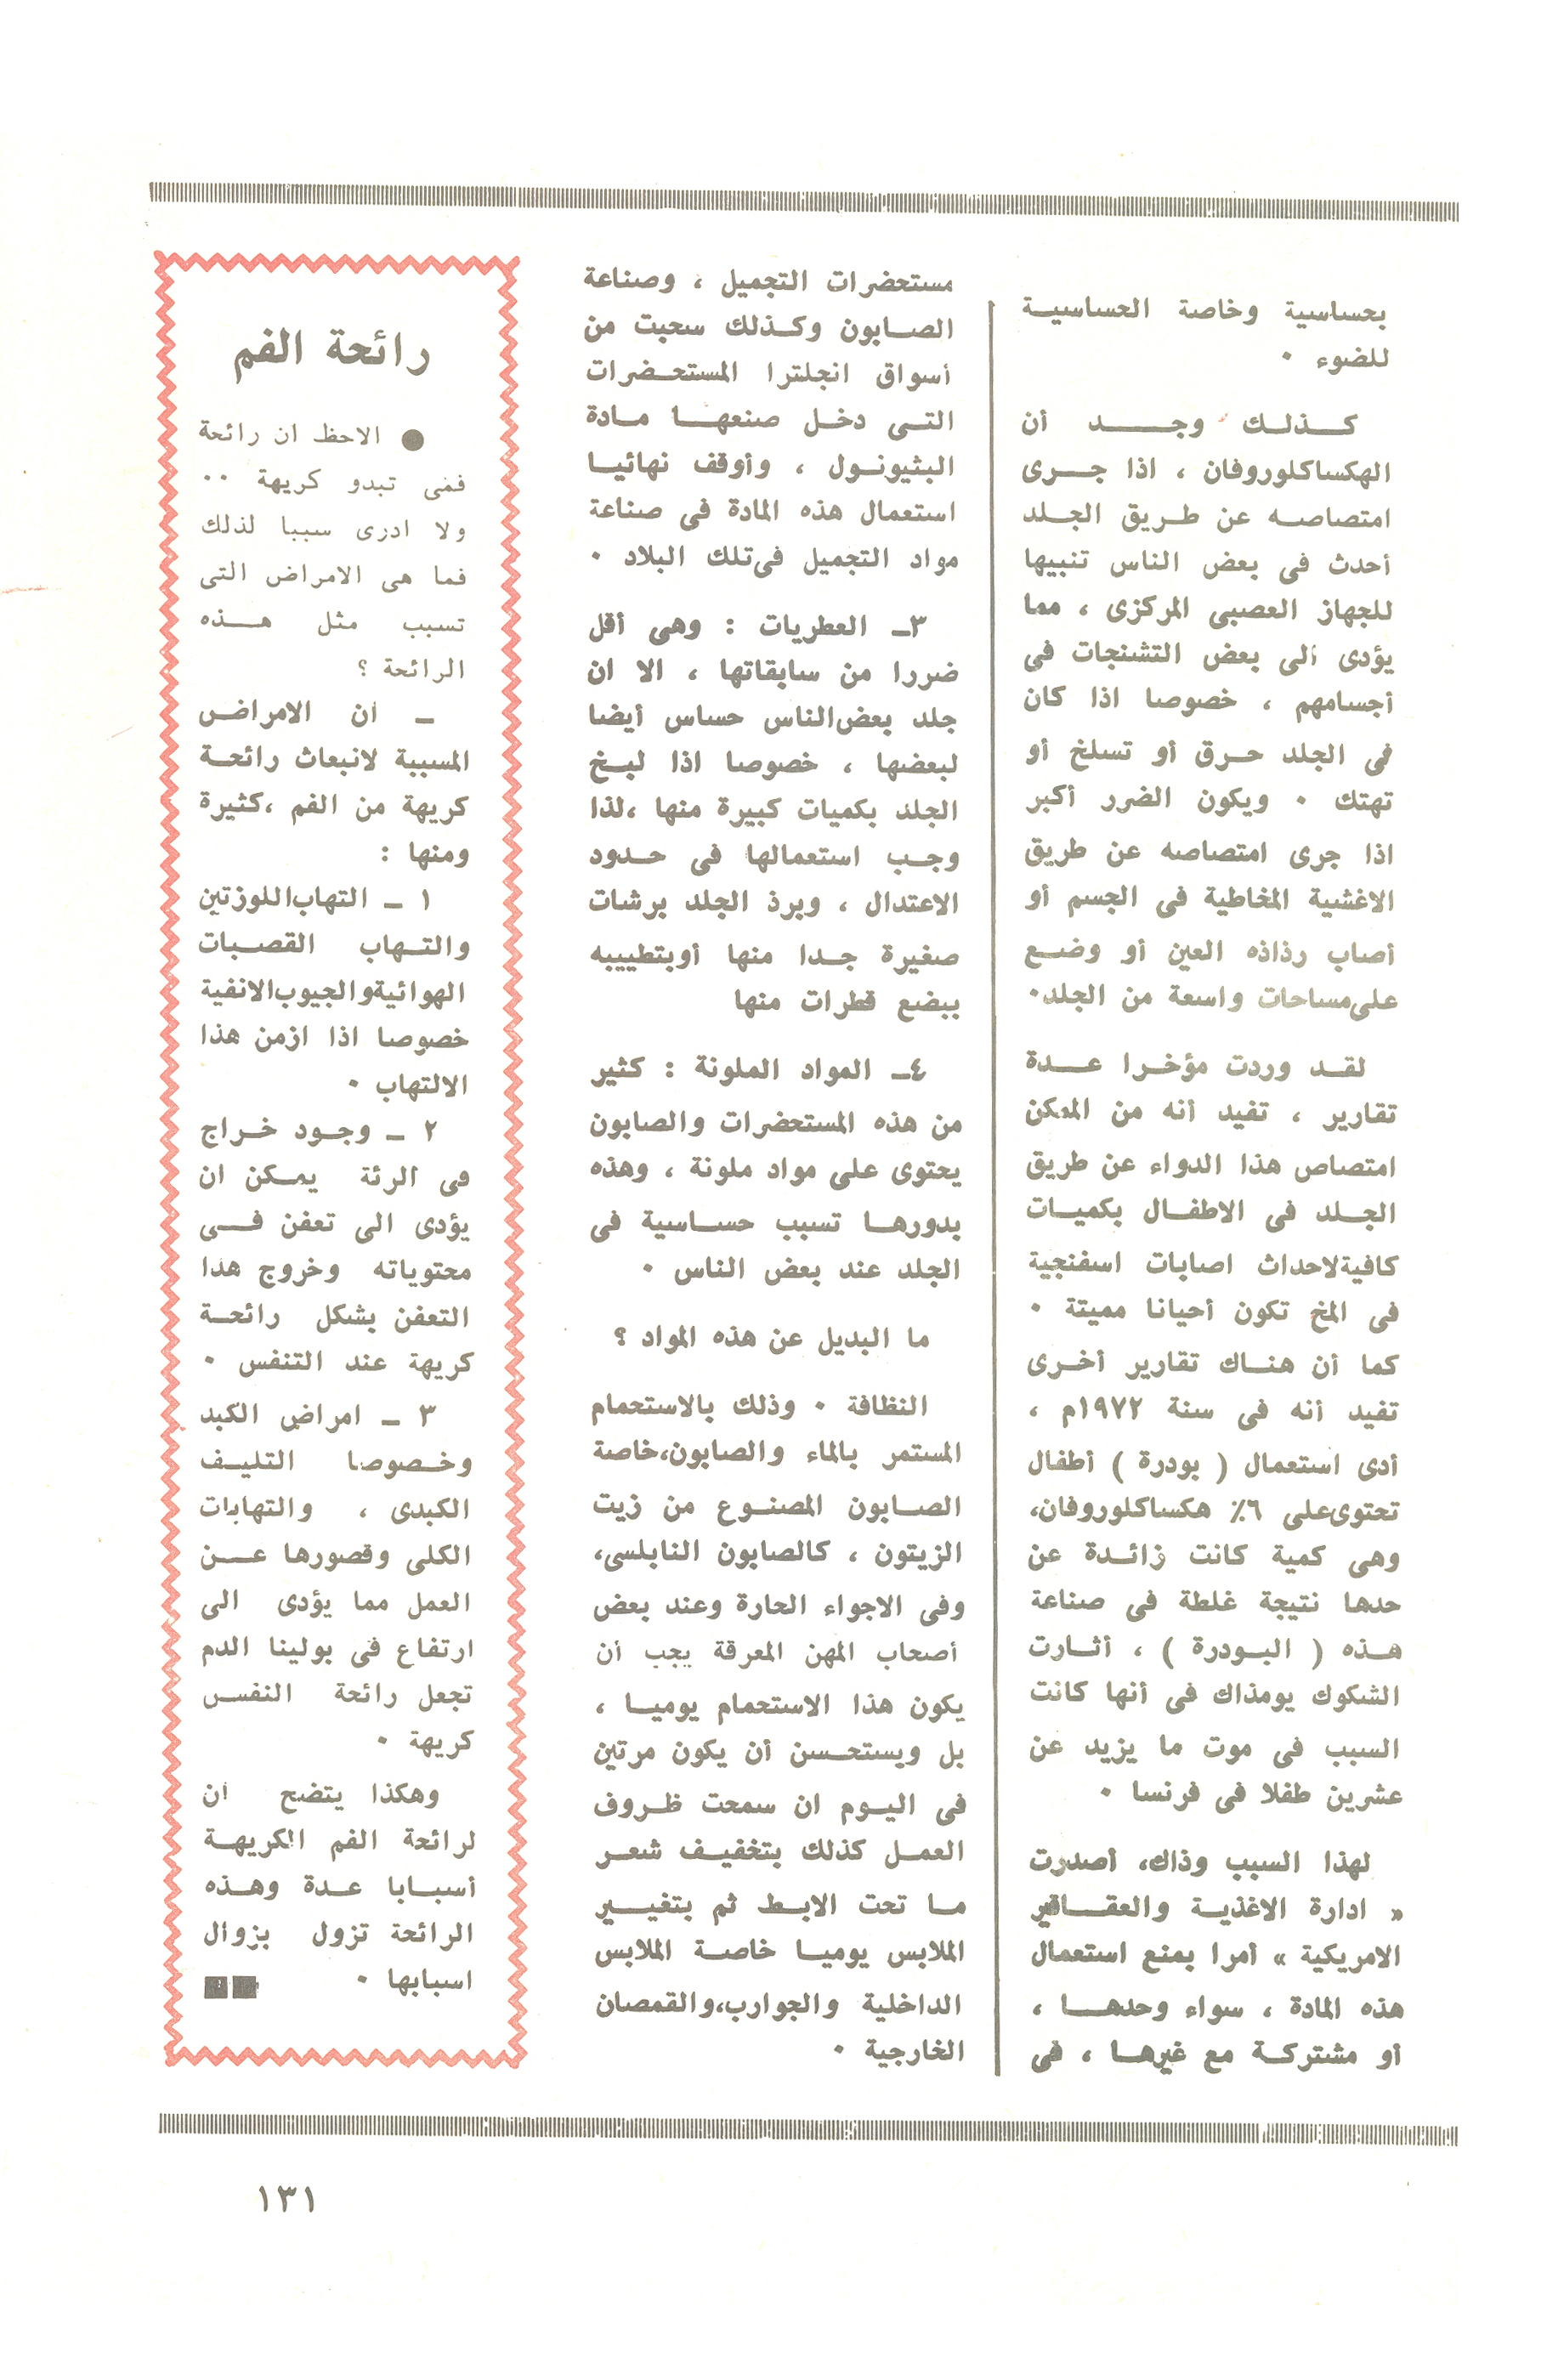 بحساسية وخاصة الحساسية
للضوء ٠
كذلك وجد أن
الهكساكلوروفان ، اذا جرى
امتصاصه عن طريق الجلد
أحدث فى بعض الناس تنبيها
للجهاز العصبى المركزى ، مما
يؤدى الى بعض التشنجات فى
أجسامهم ، خصوصا اذا كان
فى الجلد حرق أو تسلخ أو
تهتك ٠ ويكون الضرر أكبر
اذا جرى امتصاصه عن طريق
الاغشية المخاطية فى الجسم أو
أصاب رذاذه العين أو وضع
على مساحات واسعة من الجلد٠
لقد وردت مؤخرا عدة
تقارير ، تفيد أنه من الممكن
امتصاص هذا الدواء عن طريق
الجلد فى الاطفال بكميات
كافية لاحداث اصابات اسفنجية
فى المخ تكون أحيانا مميتة ٠
كما أن هناك تقارير أخرى
تفيد أنه فى سنة ١٩٧٢م ،
أدى استعمال ( بودرة ) أطفال
تحتوى على ٦٪ هكساكلوروفان،
وهى كمية كانت زائدة عن
حدها نتيجة غلطة فى صناعة
هذه ( البودرة ) ، أثارت
الشكوك يومذاك فى أنها كانت
السبب فى موت ما يزيد عن
عشرين طفلا فى فرنسا ٠
لهذا السبب وذاك، أصدرت
« ادارة الاغذية والعقاقير
الامريكية » أمرا بمنع استعمال
هذه المادة ، سواء وحدها ،
أو مشتركة مع غيرها ، فى
مستحضرات التجميل ، وصناعة
الصابون وكذلك سحبت من
أسواق انجلترا المستحضرات
التى دخل صنعها مادة
البثيونول ، وأوقف نهائيا
استعمال هذه المادة فى صناعة
مواد التجميل فى تلك البلاد ٠
٣ـ العطريات : وهى أقل
ضررا من سابقاتها ، الا ان
جلد بعض الناس حساس أيضا
لبعضها ، خصوصا اذا لبخ
الجلد بكميات كبيرة منها ،لذا
وجب استعمالها فى حدود
الاعتدال ، وبرذ الجلد برشات
صغيرة جدا منها أوبتطييبه
ببضع قطرات منها
٤ـ المواد الملونة : كثير
من هذه المستحضرات والصابون
يحتوى على مواد ملونة ، وهذه
بدورها تسبب حساسية فى
الجلد عند بعض الناس ٠
ما البديل عن هذه المواد ؟
النظافة ٠ وذلك بالاستحمام
المستمر بالماء والصابون،خاصة
الصابون المصنوع من زيت
الزيتون ، كالصابون النابلسى،
وفى الاجواء الحارة وعند بعض
أصحاب المهن المعرقة يجب أن
يكون هذا الاستحمام يوميا ،
بل ويستحسن أن يكون مرتين
فى اليوم ان سمحت ظروف
العمل كذلك بتخفيف شعر
ما تحت الابط ثم بتغيير
الملابس يوميا خاصة الملابس
الداخلية والجوارب،والقمصان
الخارجية ٠
رائحة الفم
● الاحظ ان رائحة
فمى تبدو كريهة ٠٠
ولا ادرى سببا لذلك
فما هى الامراض التى
تسبب مثل هذه
الرائحة ؟
ـ ان الامراض
المسببة لانبعاث رائحة
كريهة من الفم ،كثيرة
ومنها :
١ ـ التهاب اللوزتين
والتهاب القصبات
الهوائية والجيوب الانفية
خصوصا اذا ازمن هذا
الالتهاب ٠
٢ ـ وجود خراج
فى الرئة يمكن ان
يؤدى الى تعفن فى
محتوياته وخروج هذا
التعفن بشكل رائحة
كريهة عند التنفس ٠
٣ ـ امراض الكبد
وخصوصا التليف
الكبدى ، والتهابات
الكلى وقصورها عن
العمل مما يؤدى الى
ارتفاع فى بولينا الدم
تجعل رائحة النفس
كريهة ٠
وهكذا يتضح أن
لرائحة الفم الكريهة
أسبابا عدة وهذه
الرائحة تزول بزوال
اسبابها ٠
١٣١